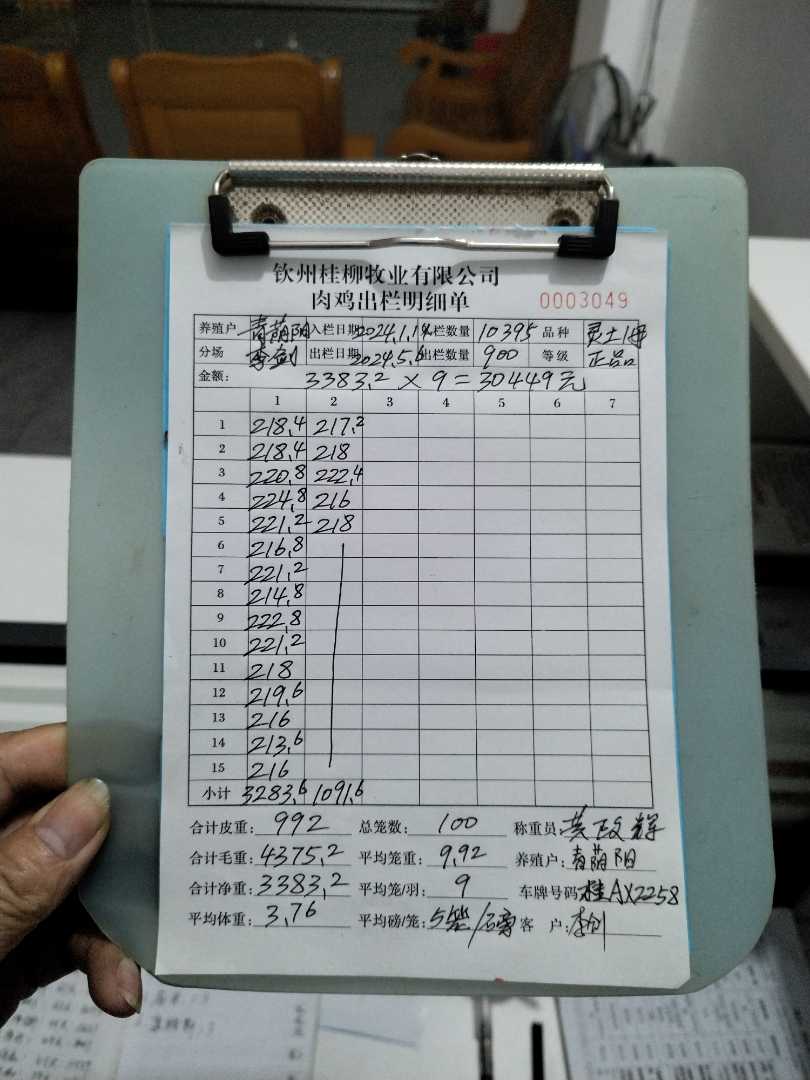 钦州桂柳牧业有限公司
肉鸡出栏明细单 0003049
养殖户 青荫阳 入栏日期 2024.1.14 入栏数量 10395 品种 灵土1号
分场 李剑 出栏日期 2024.5.6 出栏数量 900 等级 正品
金额: 3383.2 × 9 = 30449元
1 2 3 4 5 6 7
1 218.4 217.2
2 218.4 218
3 220.8 222.4
4 224.8 216
5 221.2 218
6 216.8
7 221.2
8 214.8
9 222.8
10 221.2
11 218
12 219.6
13 216
14 213.6
15 216
小计 3283.6 1091.6
合计皮重: 992 总笼数: 100 称重员: 黄政辉
合计毛重: 4375.2 平均笼重: 9.92 养殖户: 青荫阳
合计净重: 3383.2 平均笼/羽: 9 车牌号码 桂AX2258
平均体重: 3.76 平均磅/笼: 5 客 户: